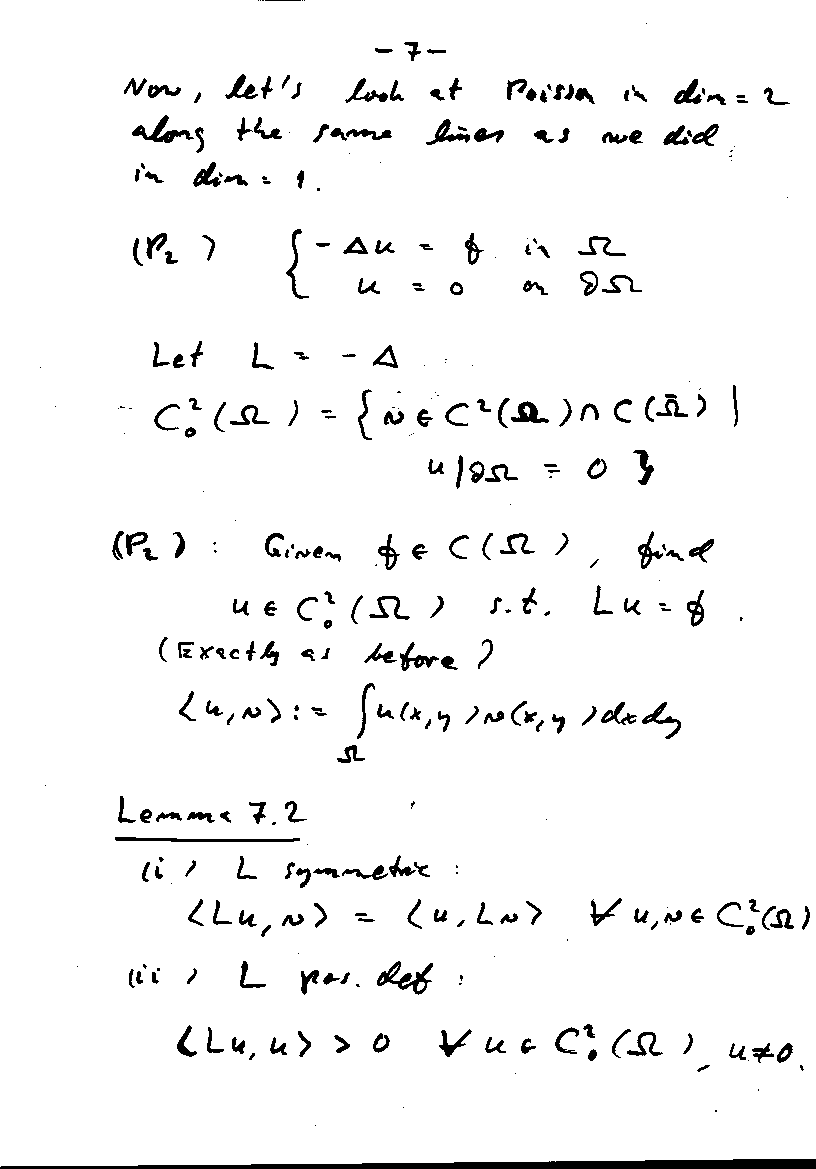 - 7 -
Now, let's look at Poisson in dim = 2
along the same lines as we did
in dim = 1.
(P₂) { -Δu = f in Ω
u = 0 on ∂Ω
Let L = -Δ
C₀²(Ω) = { v ∈ C²(Ω) ∩ C(Ω̄) |
u|∂Ω = 0 }
(P₂) : Given f ∈ C(Ω), find
u ∈ C₀²(Ω) s.t. Lu = f .
(Exactly as before)
⟨u,v⟩ := ∫ u(x,y) v(x,y) dxdy
Ω
Lemma 7.2
(i) L symmetric :
⟨Lu,v⟩ = ⟨u,Lv⟩ ∀ u,v ∈ C₀²(Ω)
(ii) L pos. def :
⟨Lu,u⟩ > 0 ∀ u ∈ C₀²(Ω), u≠0.